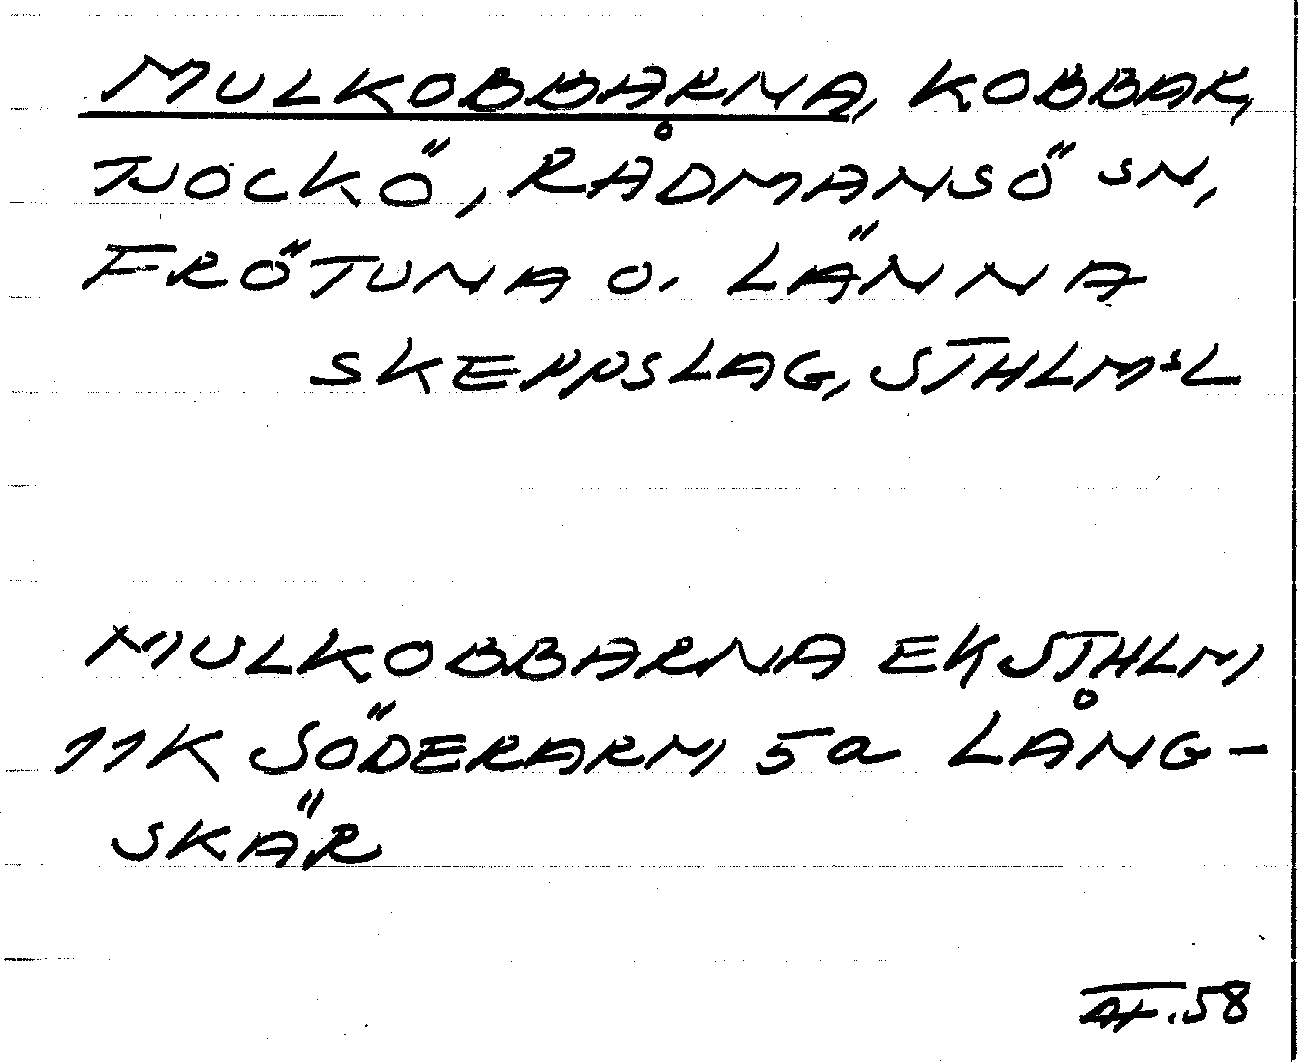 MULKOBBARNA, KOBBAR,
TJOCKÖ, RÅDMANSÖ SN,
FRÖTUNA O. LÄNNA
SKEPPSLAG, STHLMSL
MULKOBBARNA EK STHLM,
11K SÖDERARM, 5a LÅNG-
SKÄR
58